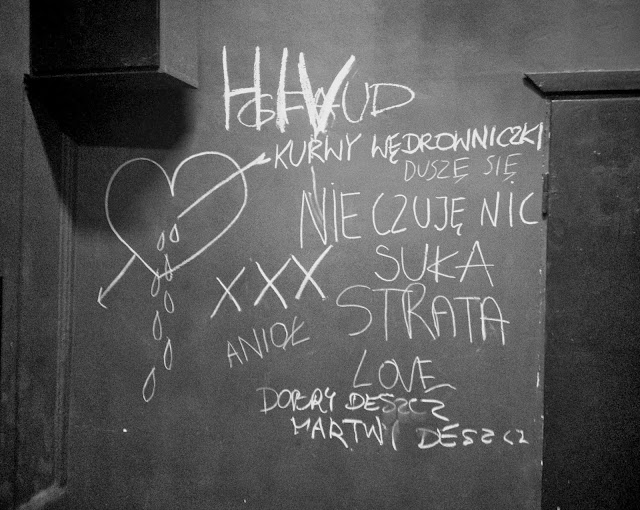 HIV
KURWY WĘDROWNICZKI
DUSZĘ SIĘ
NIE CZUJĘ NIC
SUKA
XXX
STRATA
ANIOŁ
LOVE
DOBRY DESZCZ
MARTWY DESZCZ